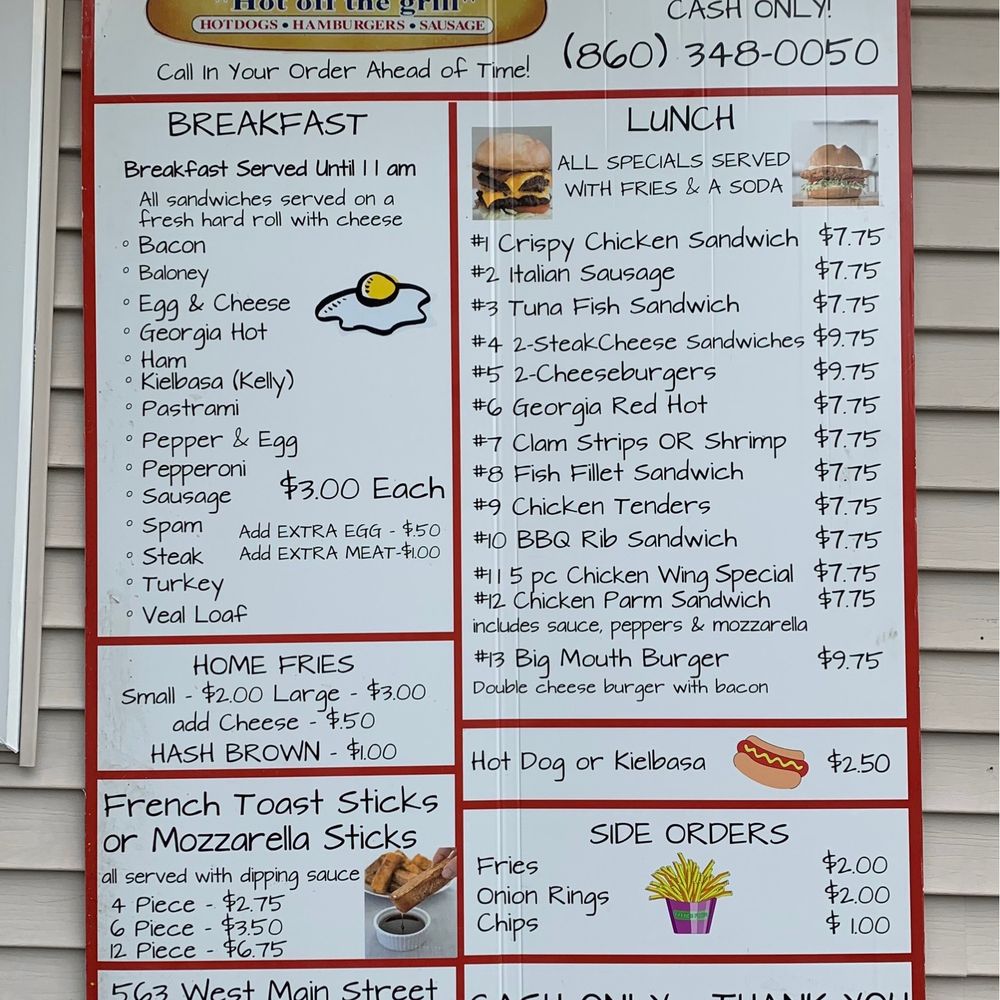 "Hot off the grill"
HOTDOGS • HAMBURGERS • SAUSAGE
Call In Your Order Ahead of Time!
CASH ONLY!
(860) 348-0050
BREAKFAST
Breakfast Served Until 11 am
All sandwiches served on a
fresh hard roll with cheese
° Bacon
° Baloney
° Egg & Cheese
° Georgia Hot
° Ham
° Kielbasa (Kelly)
° Pastrami
° Pepper & Egg
° Pepperoni
° Sausage
$3.00 Each
° Spam
Add EXTRA EGG - $.50
° Steak
Add EXTRA MEAT-$1.00
° Turkey
° Veal Loaf
HOME FRIES
Small - $2.00 Large - $3.00
add Cheese - $.50
HASH BROWN - $1.00
French Toast Sticks
or Mozzarella Sticks
all served with dipping sauce
4 Piece - $2.75
6 Piece - $3.50
12 Piece - $6.75
563 West Main Street
LUNCH
ALL SPECIALS SERVED
WITH FRIES & A SODA
#1 Crispy Chicken Sandwich $7.75
#2 Italian Sausage $7.75
#3 Tuna Fish Sandwich $7.75
#4 2-SteakCheese Sandwiches $9.75
#5 2-Cheeseburgers $9.75
#6 Georgia Red Hot $7.75
#7 Clam Strips OR Shrimp $7.75
#8 Fish Fillet Sandwich $7.75
#9 Chicken Tenders $7.75
#10 BBQ Rib Sandwich $7.75
#11 5 pc Chicken Wing Special $7.75
#12 Chicken Parm Sandwich $7.75
includes sauce, peppers & mozzarella
#13 Big Mouth Burger $9.75
Double cheese burger with bacon
Hot Dog or Kielbasa $2.50
SIDE ORDERS
Fries $2.00
Onion Rings $2.00
Chips $1.00
CASH ONLY - THANK YOU